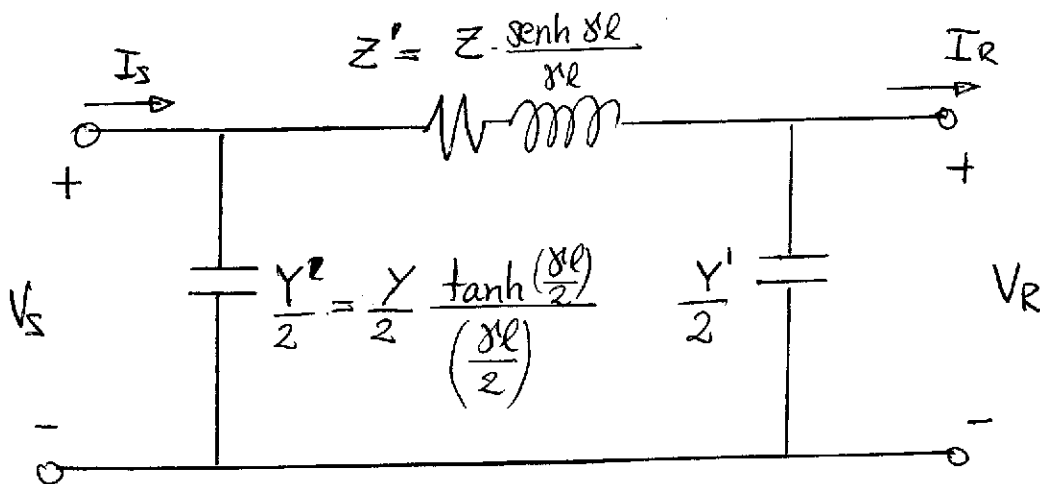 Z' = Z · senh γℓ / γℓ
I_S
I_R
+
+
V_S
Y' / 2 = Y / 2 tanh (γℓ / 2) / (γℓ / 2)
Y' / 2
V_R
-
-